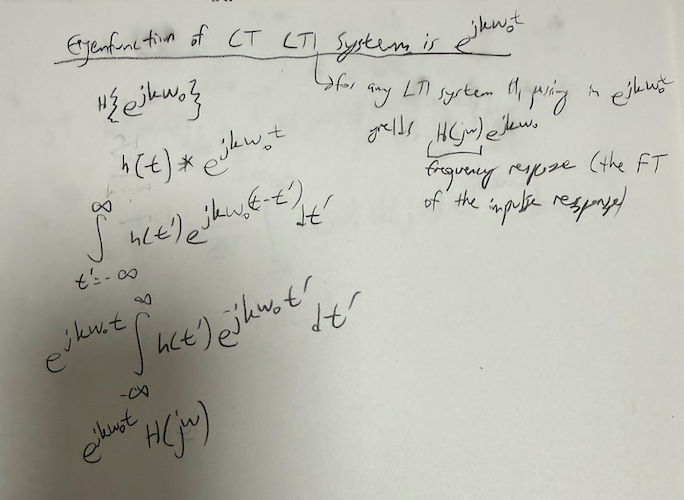 Eigenfunction of CT LTI system is e^{jkω₀t}
↳ for any LTI system H, putting in e^{jkω₀t}
yields H(jω)e^{jkω₀}
frequency response (the FT
of the impulse response)
H{e^{jkω₀}}
h(t) * e^{jkω₀t}
∫_{t'=-∞}^{∞} h(t')e^{jkω₀(t-t')}dt'
e^{jkω₀t} ∫_{-∞}^{∞} h(t')e^{-jkω₀t'}dt'
e^{jkω₀t} H(jω)